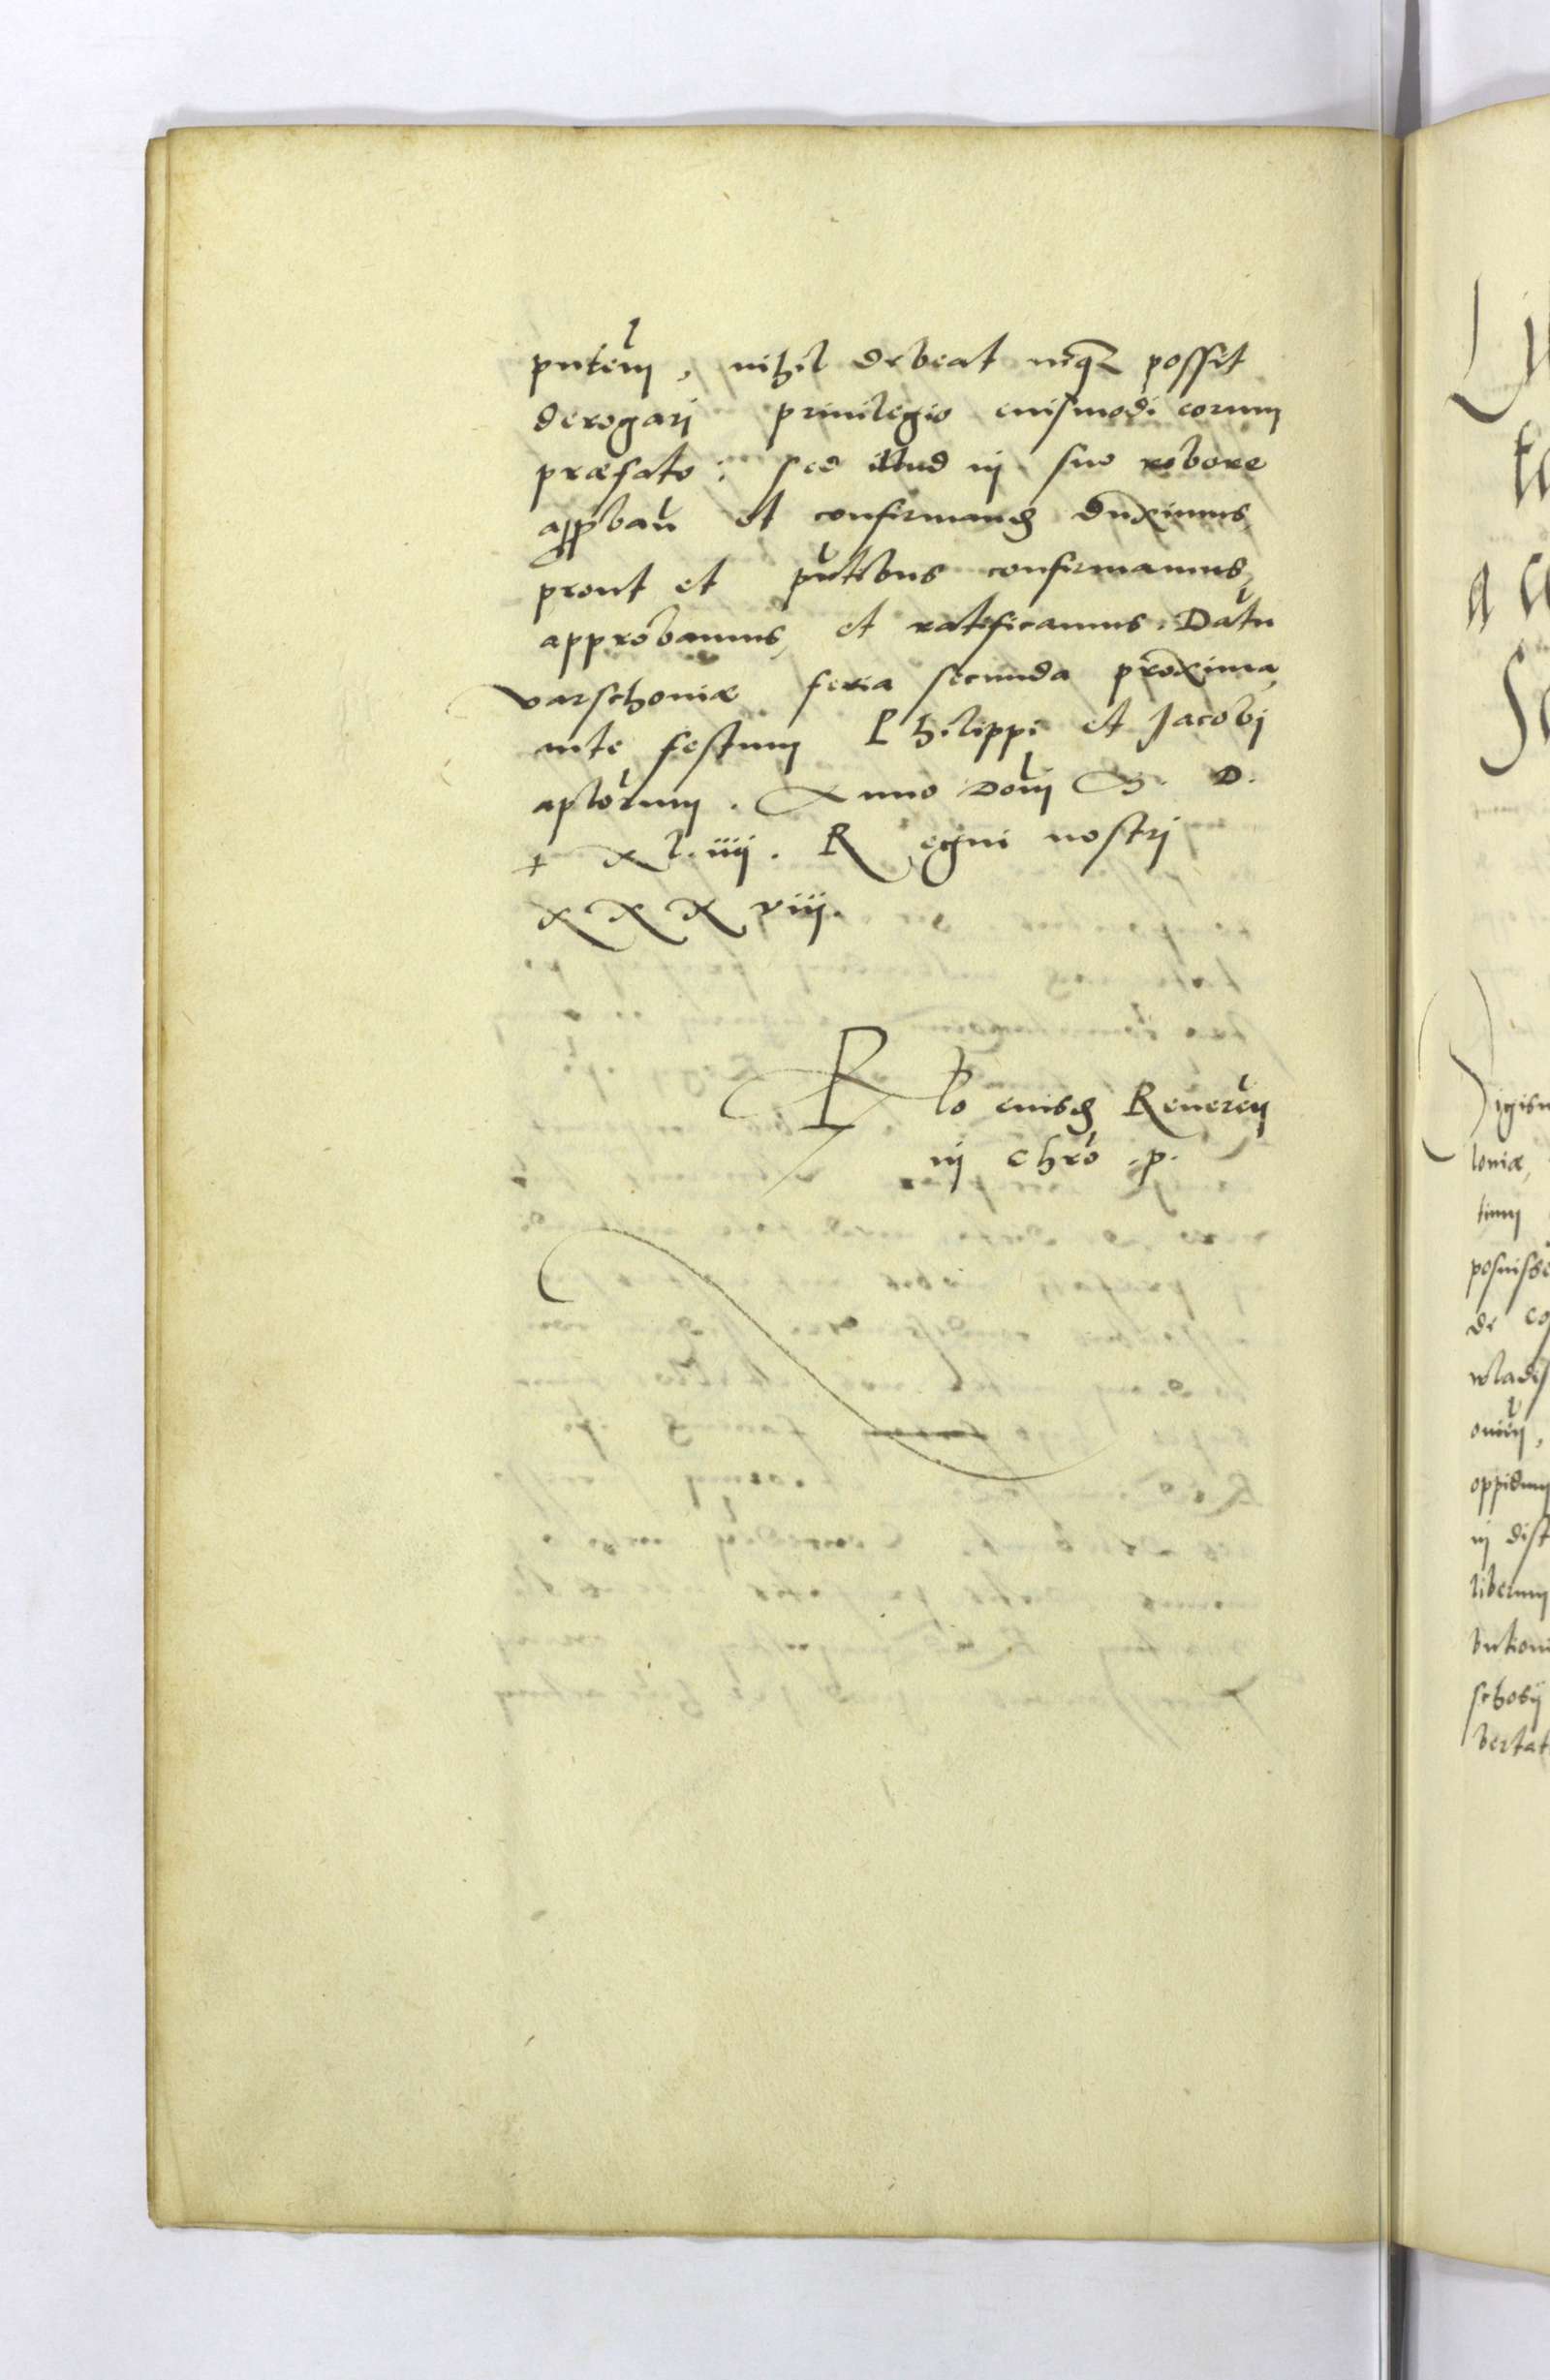 pntem, nihil debeat neqz possit
derogari priuilegio euismodi eorum
præfato: sed illud in suo robore
appban et confirmand duximus,
prout et pntibus confirmamus,
approbamus, et ratificamus. Datu
varschoniæ feria secunda proxima
ante festum Philippi et Jacobi
aplorum. Anno Doni M. D.
xliiij. Regni nostri
xxxviij.
Rlo eiusd Reueren
in Chro .p.
Ly
a c
Sigism
loniæ,
timm
posuisse
de co
wladis
oppidum
in dist
liberum
butioni
schovij
bertat